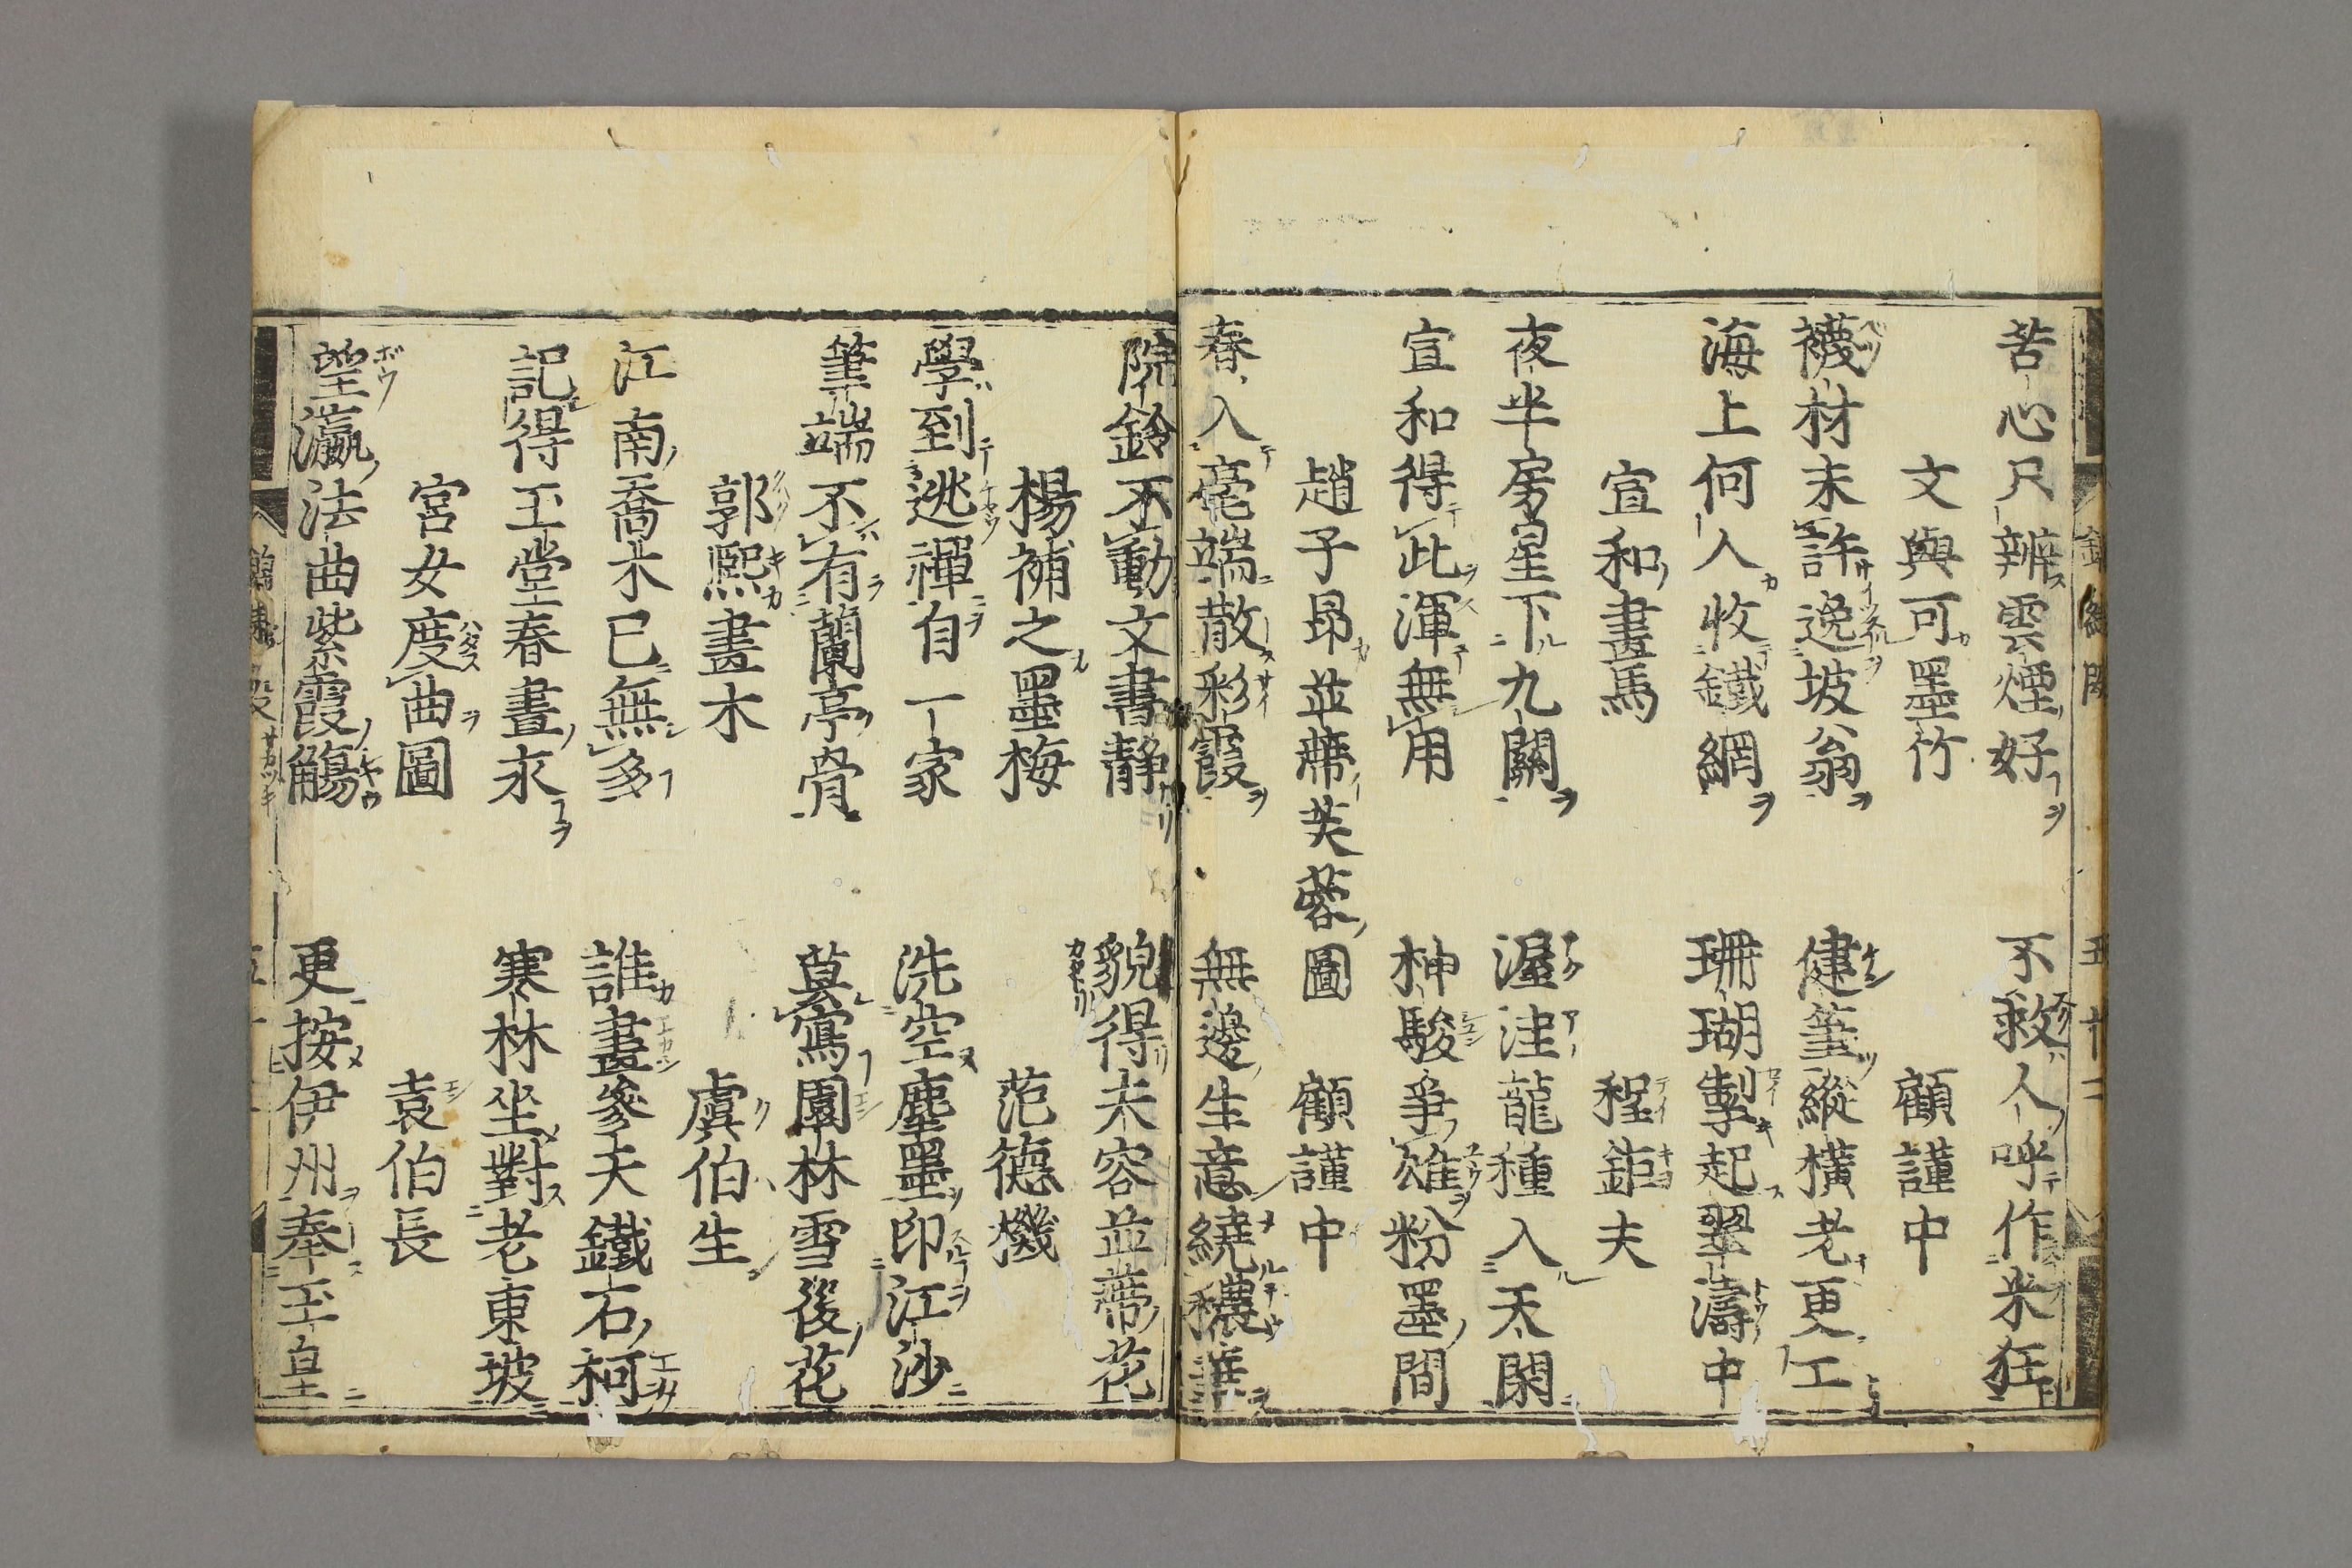 苦心只辨雲煙好　不救人呼作米狂
文與可墨竹　顧謹中
襪材未許逸坡翁　健筆縱橫老更工
海上何人收鐵網　珊瑚掣起翠濤中
宣和畫馬　程鉅夫
夜半房星下九關　渥洼龍種入天閑
宣和得此渾無用　神駿爭雄粉墨間
趙子昂並蔕芙蓉圖　顧謹中
春入毫端散彩霞　無邊生意繞穠華
院鈴不動文書靜　貌得夫容並蔕花
楊補之墨梅　范德機
學到逃禪自一家　洗空塵墨印江沙
筆端不有蘭亭骨　莫寫園林雪後花
郭熙畫木　虞伯生
江南喬木已無多　誰畫參天鐵石柯
記得玉堂春晝永　寒林坐對老東坡
宮女度曲圖　袁伯長
望瀛法曲紫霞觴　更按伊州奉玉皇